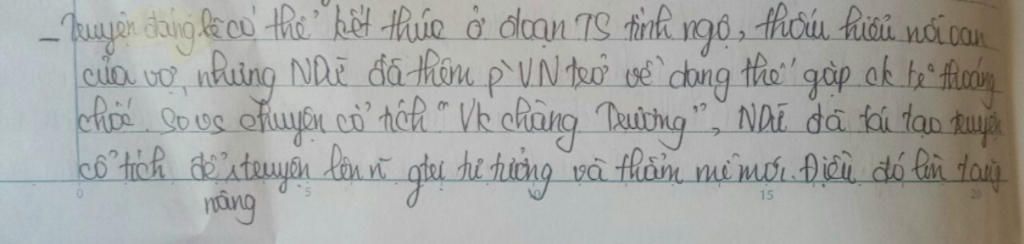 - Truyện đáng lẽ có thể kết thúc ở đoạn TS tỉnh ngộ, thấu hiểu nỗi oan
của vợ, nhưng NDữ đã thêm p² VN trở về dang thế gặp ck trg thoáng
chốc. So vs chuyện cổ tích "Vk chàng Trương", NDữ đã tái tạo truyện
cổ tích để nâng truyện lên n~ gtrị tư tưởng và thẩm mĩ mới. Điều đó làm tăng